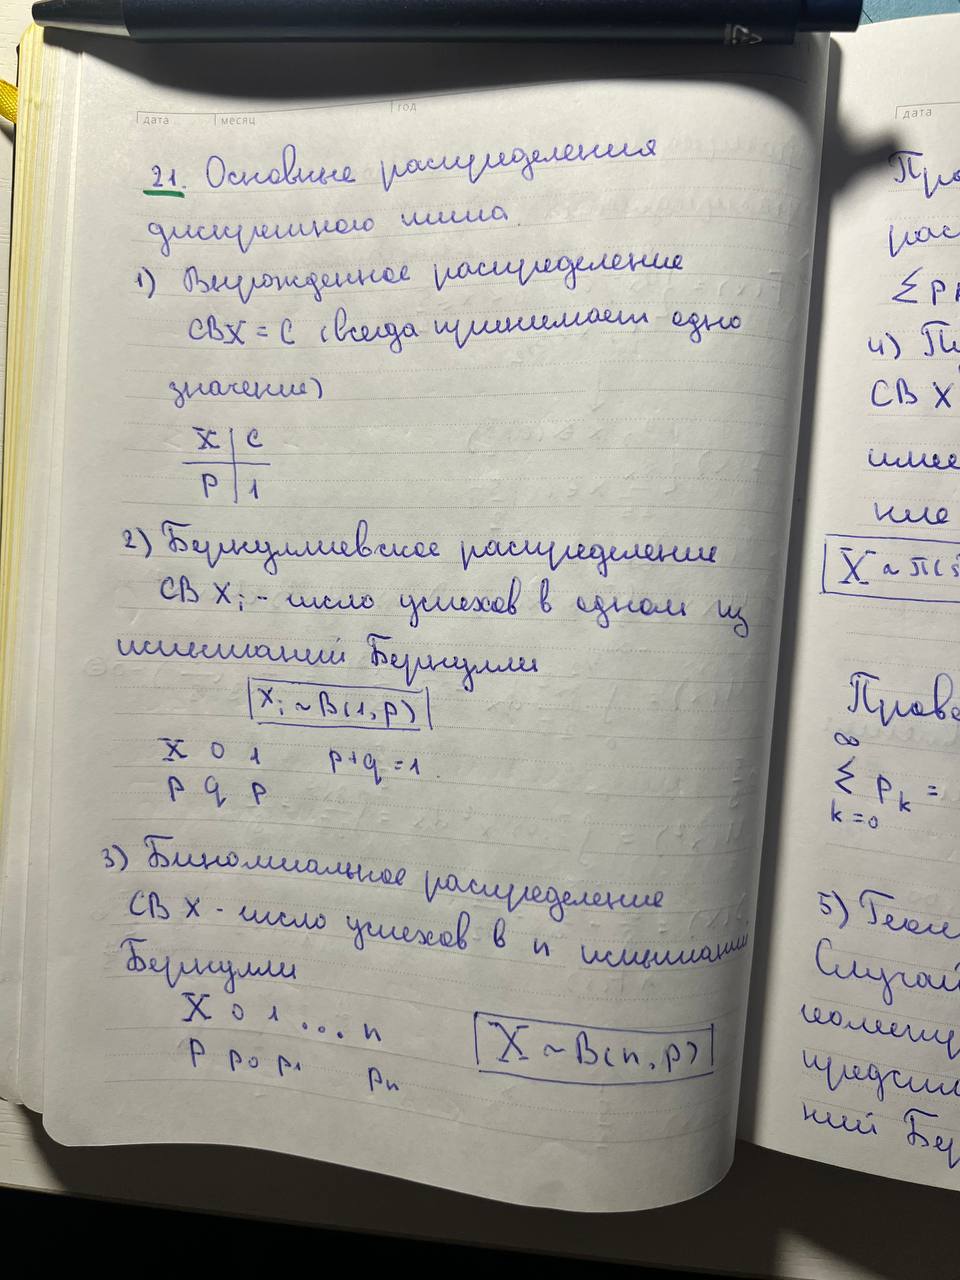 дата месяц год
21. Основные распределения
дискретного типа.
1) Вырожденное распределение
СВX = C (всегда принимает одно
значение)
X C
P 1
2) Бернуллиевское распределение
СВ Xi - число успехов в одном из
испытаний Бернулли
Xi ~ B(1, p)
X 0 1 p+q=1.
P q p
3) Биномиальное распределение
СВ X - число успехов в n испытаний
Бернулли
X 0 1 ... n
P p0 p1 pn
X ~ B(n, p)
дата
Σ p
4)
СВ X
X ~ П(
∞
Σ pk =
k=0
5)